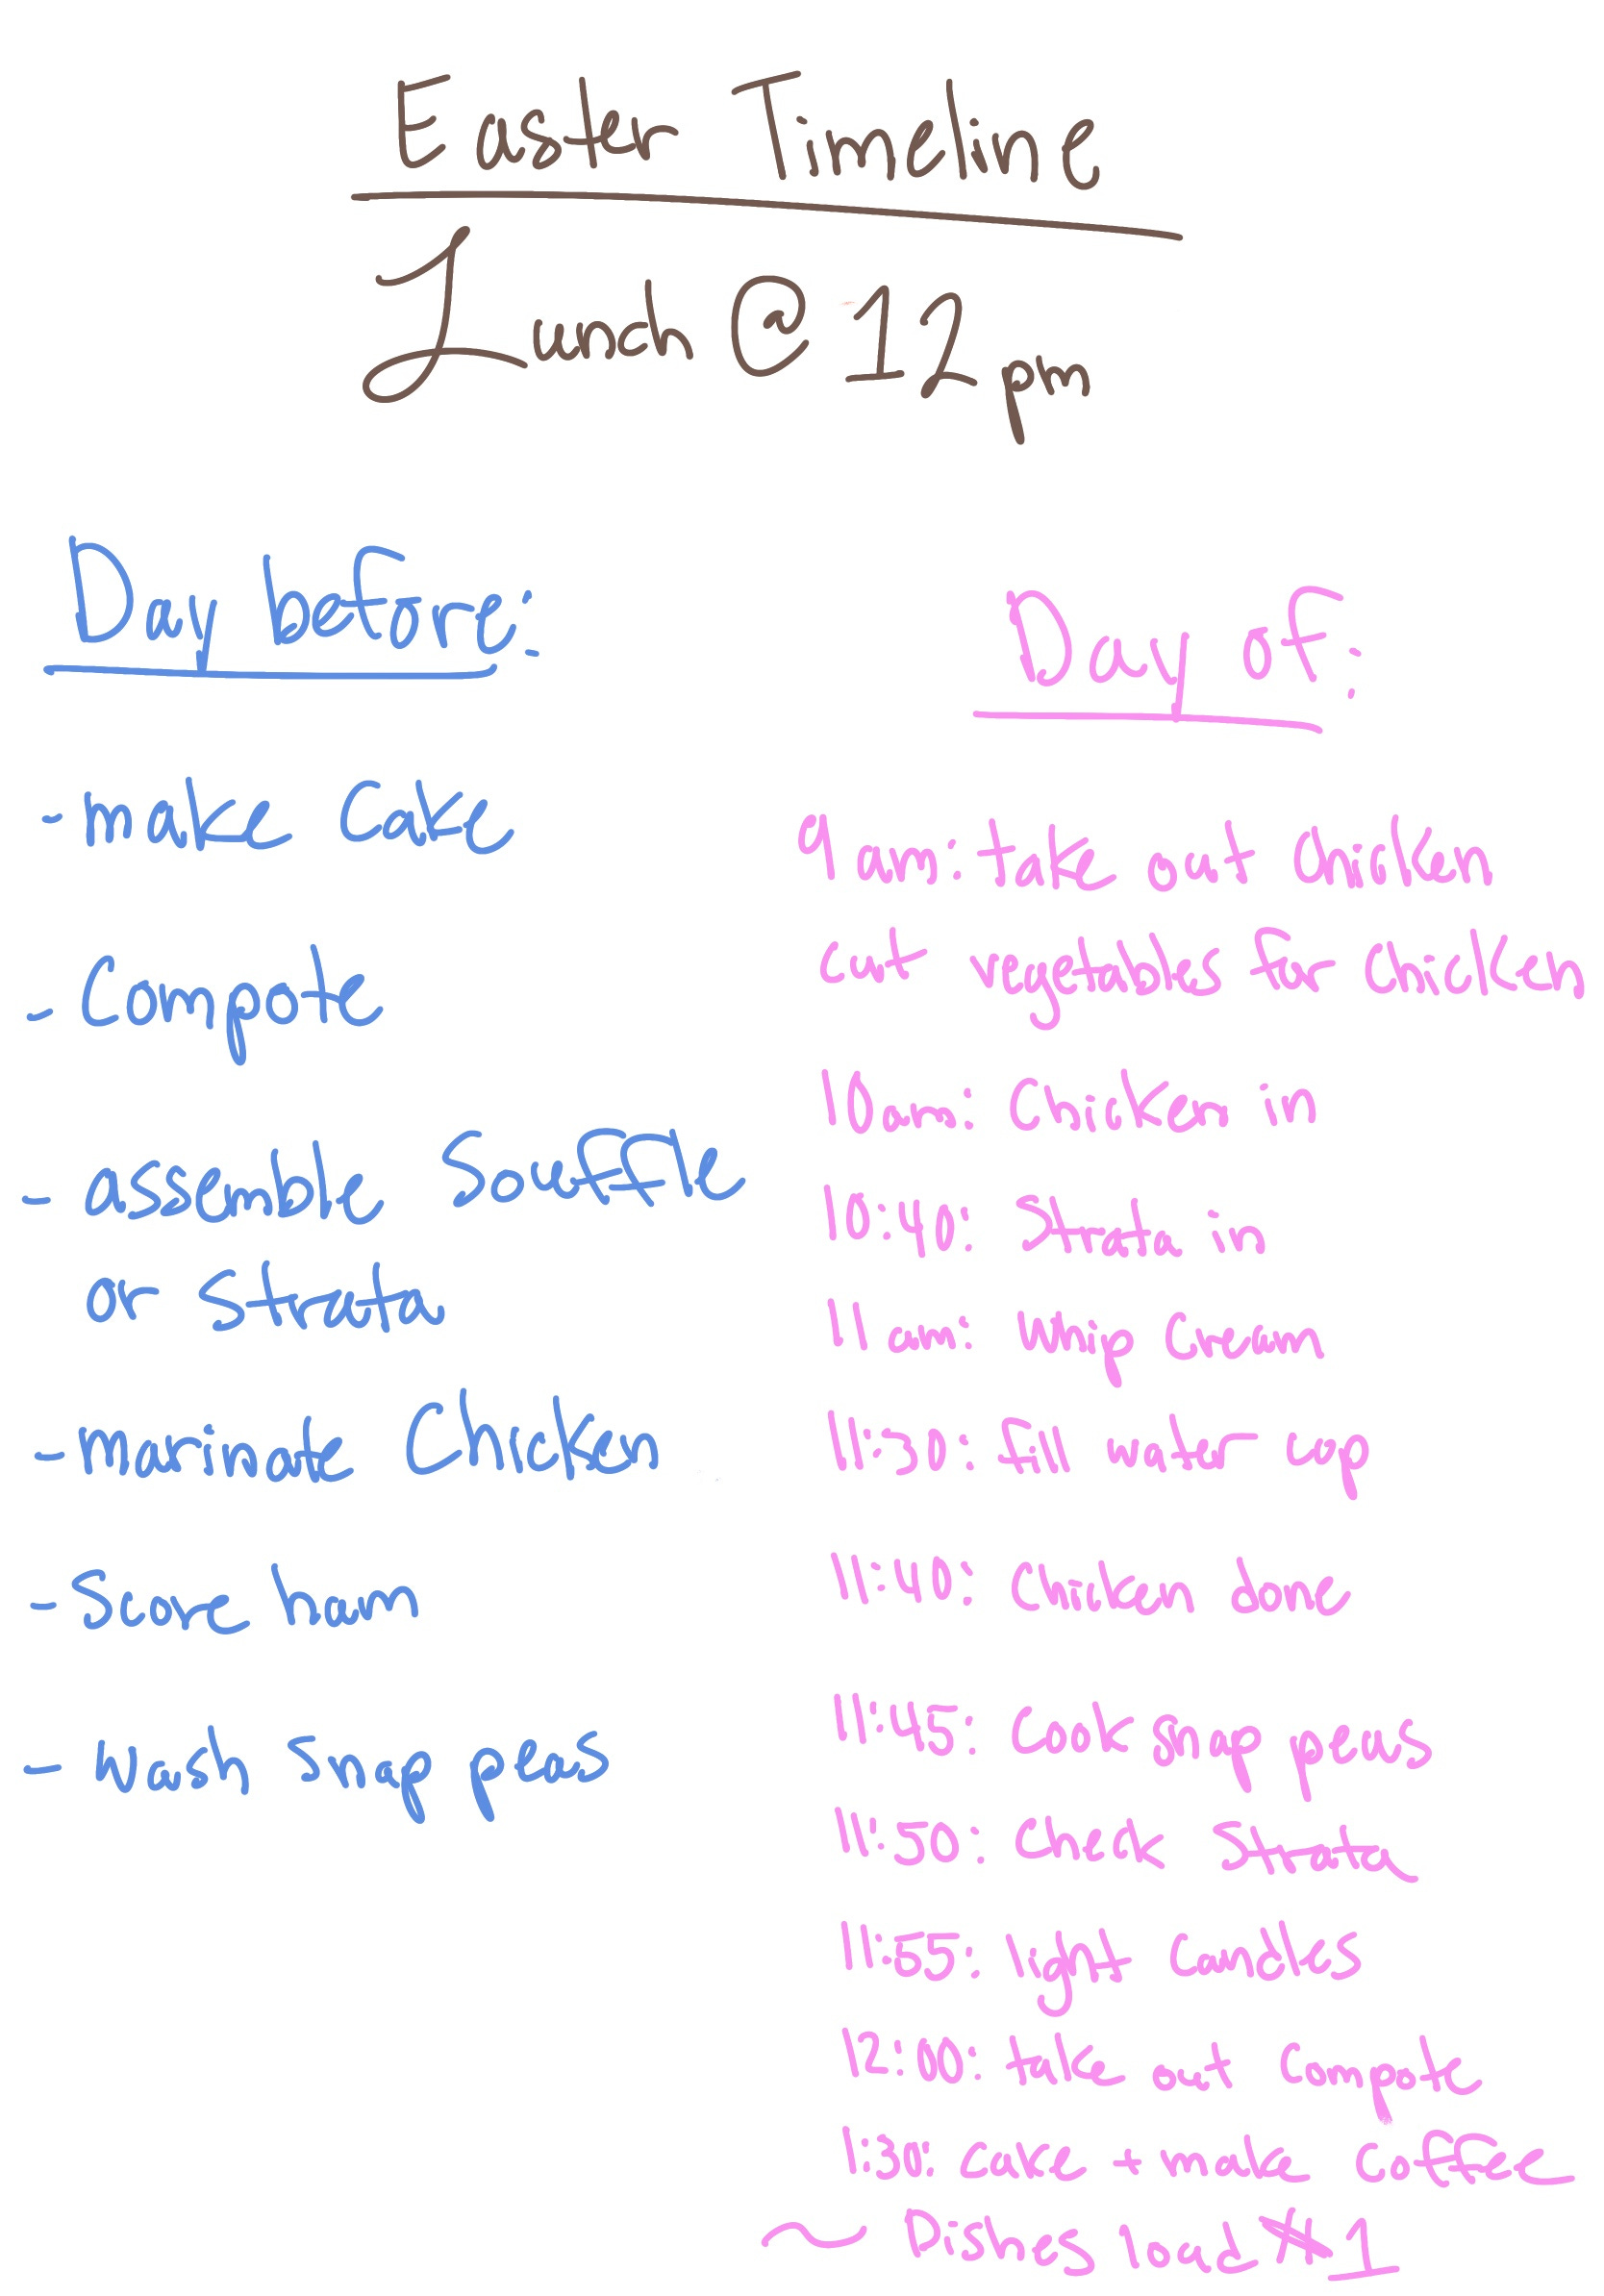 Easter Timeline
Lunch @ 12 pm
Day before:
- make Cake
- Compote
- assemble Souffle
or Strata
- marinate Chicken
- Score ham
- Wash Snap peas
Day of:
9 am: take out Chicken
cut vegetables for Chicken
10am: Chicken in
10:40: Strata in
11 am: Whip Cream
11:30: fill water cup
11:40: Chicken done
11:45: Cook Snap peas
11:50: Check Strata
11:55: light Candles
12:00: take out Compote
1:30: cake + make Coffee
~ Dishes load #1